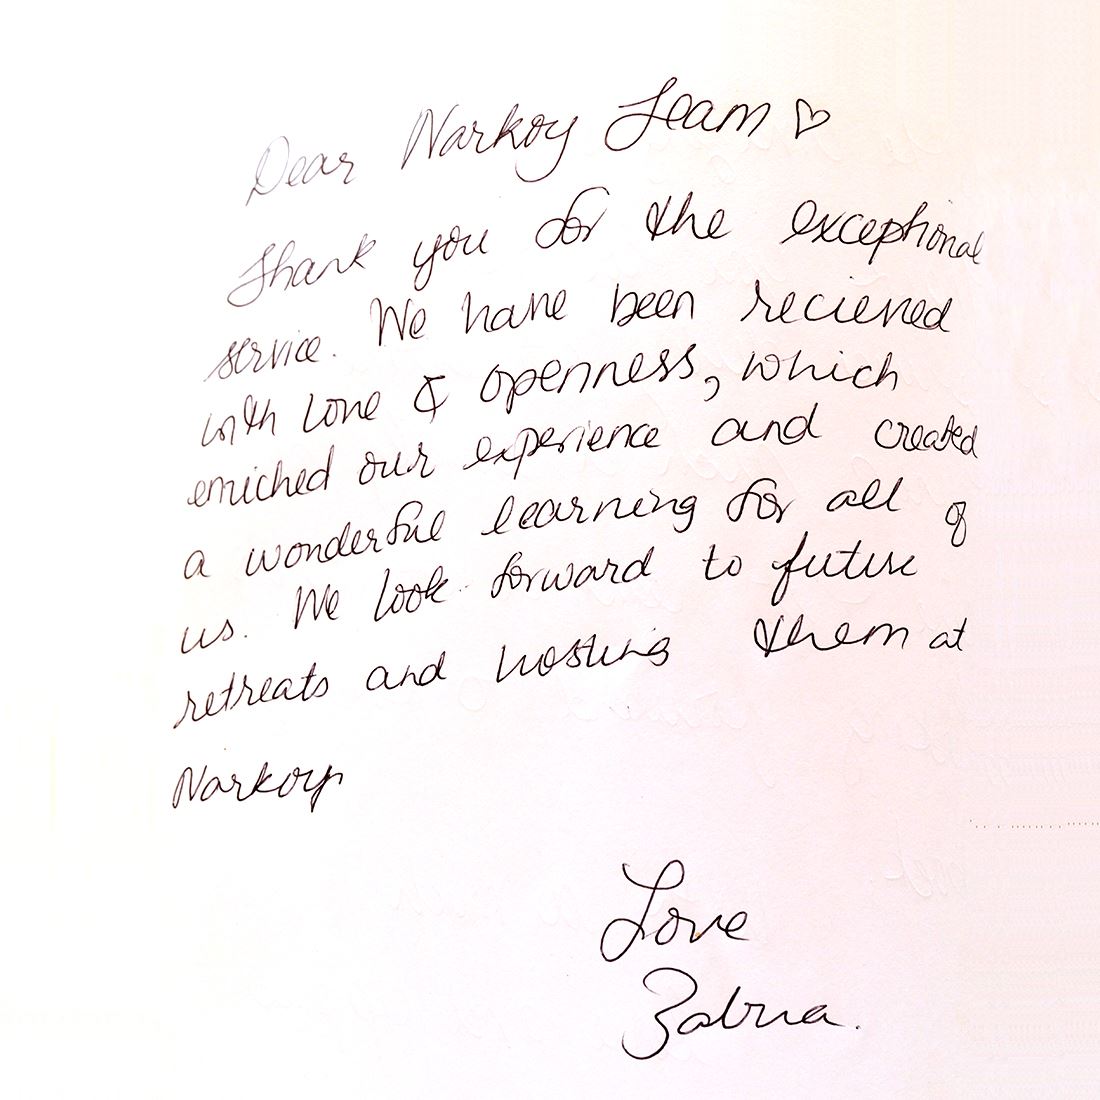 Dear Narkoy Team ♡
Thank you for the exceptional
service. We have been recieved
with love & openness, which
enriched our experience and created
a wonderful learning for all of
us. We look forward to future
retreats and hosting them at
Narkoy
Love